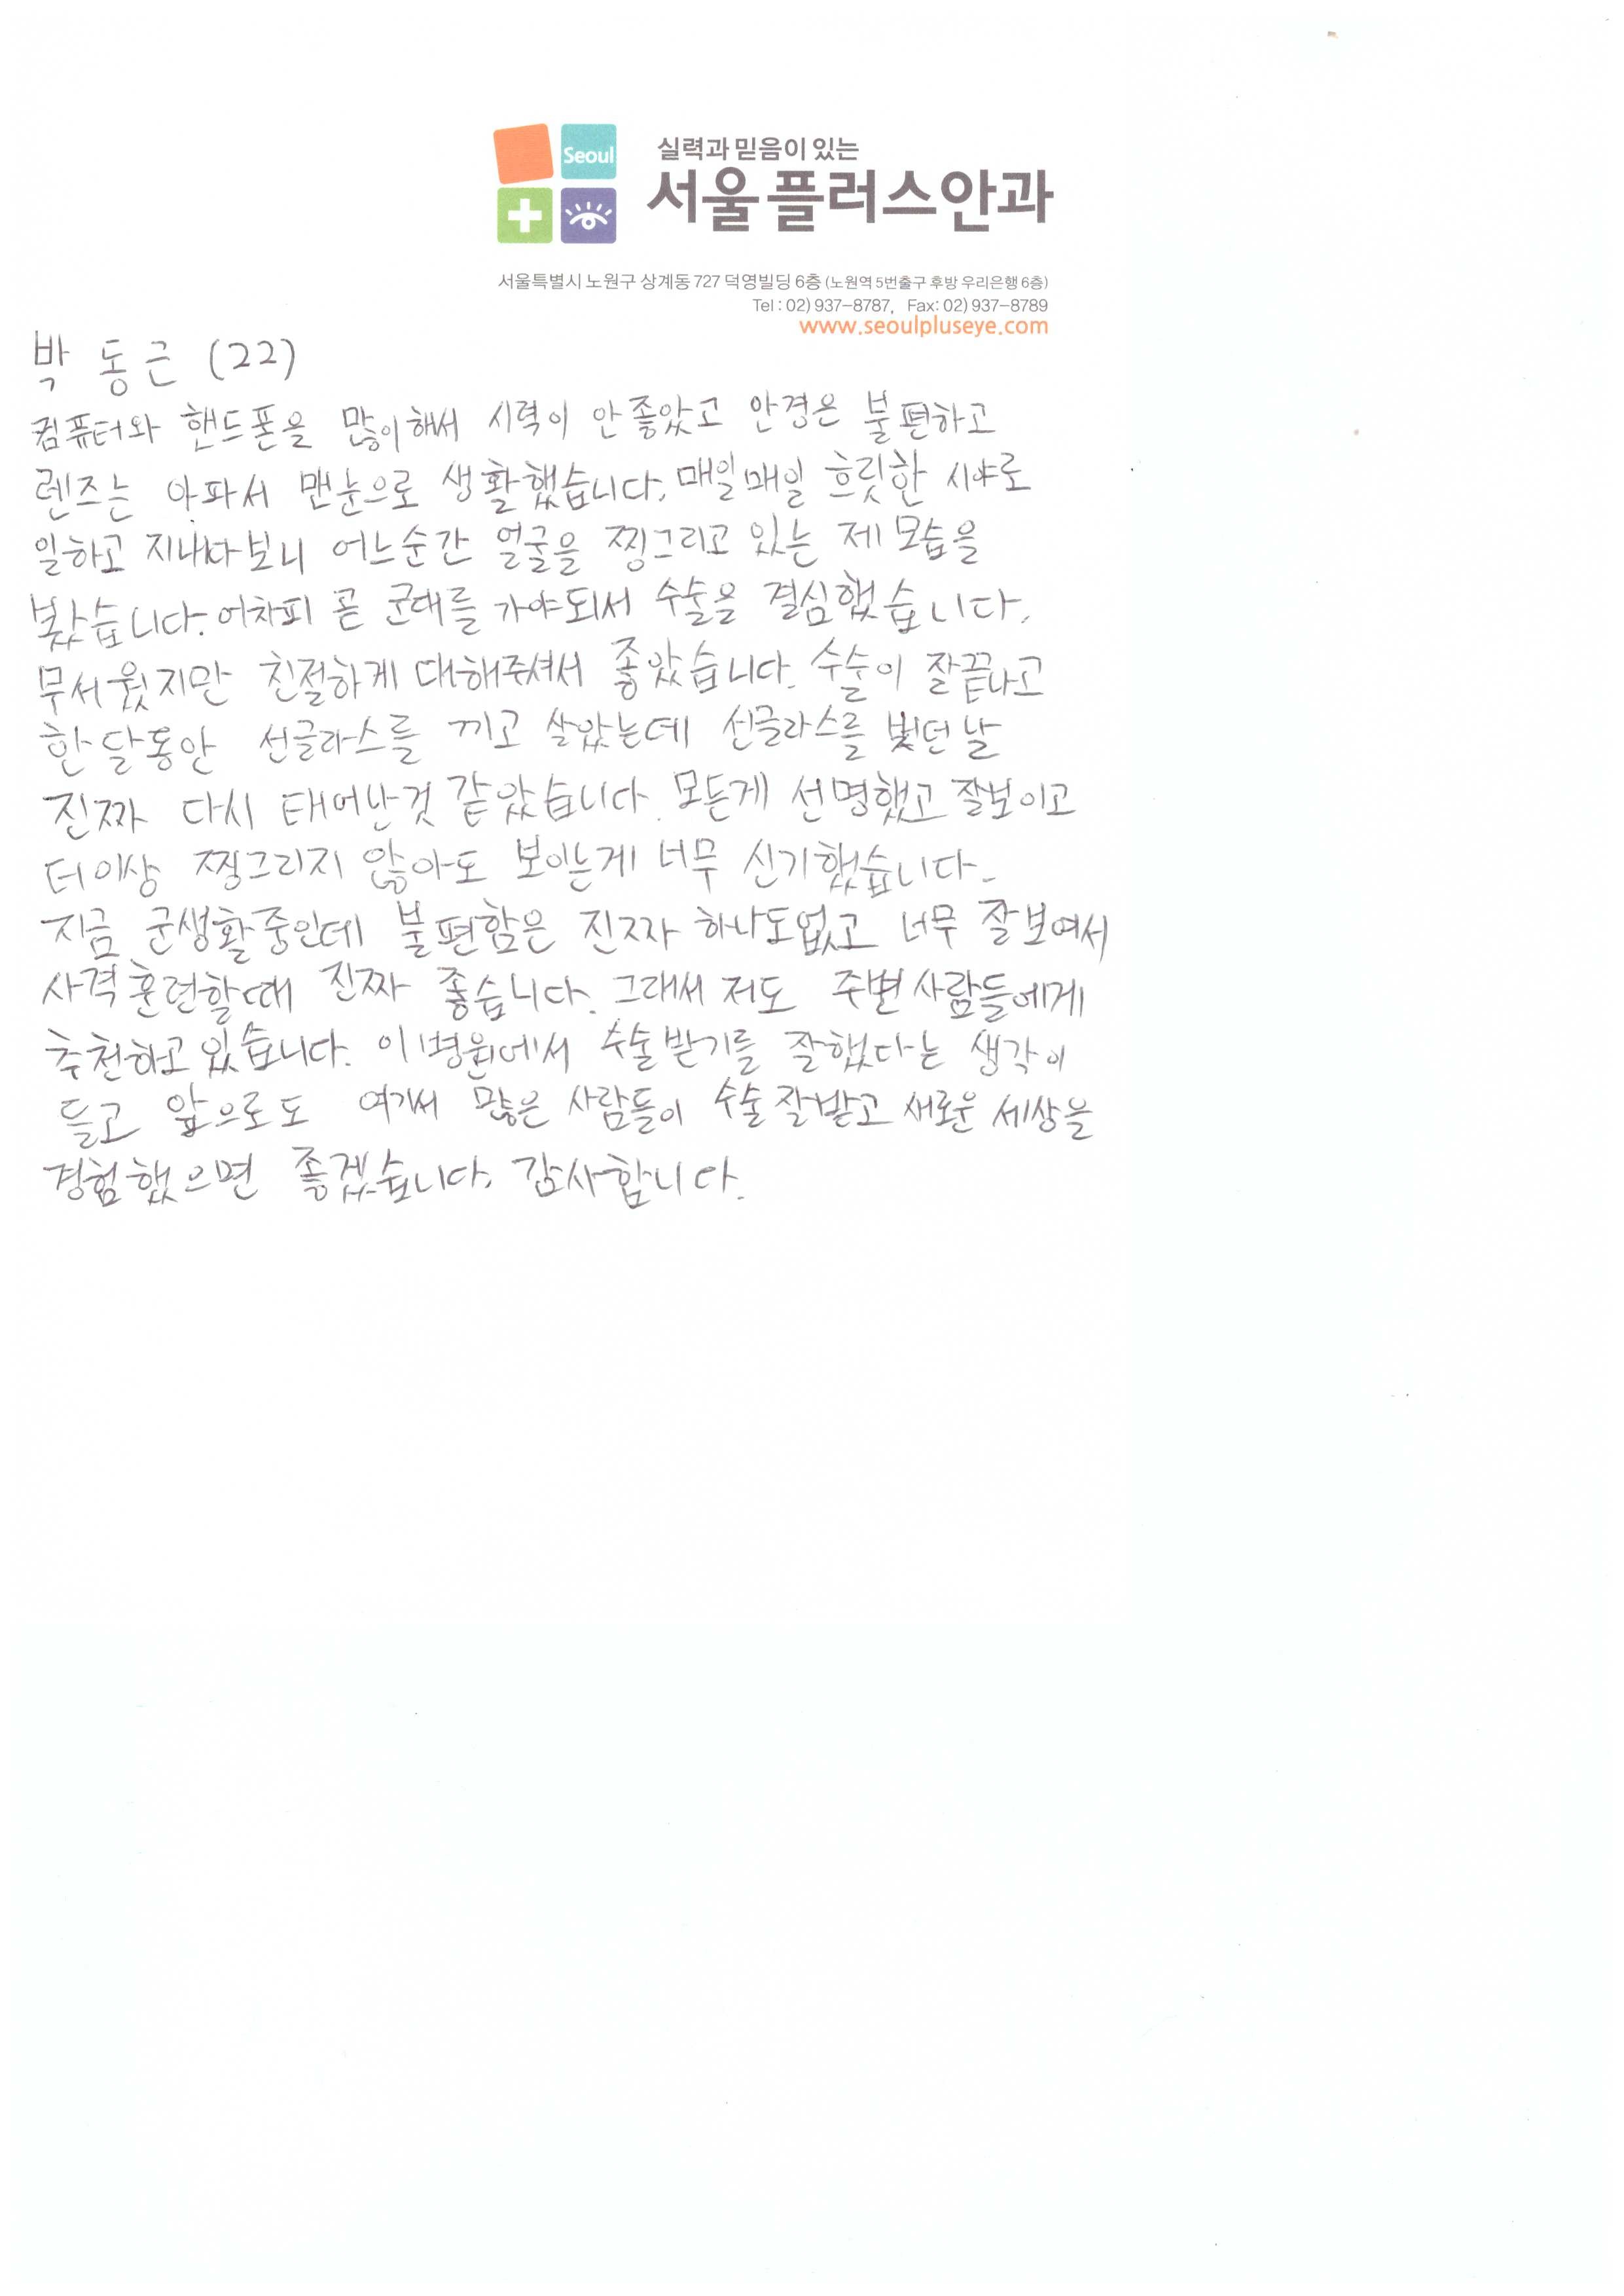 Seoul
실력과 믿음이 있는
서울플러스안과
서울특별시 노원구 상계동 727 덕영빌딩 6층 (노원역 5번출구 후방 우리은행 6층)
Tel : 02) 937-8787, Fax: 02) 937-8789
www.seoulpluseye.com
박 동 근 (22)
컴퓨터와 핸드폰을 많이해서 시력이 안좋았고 안경은 불편하고
렌즈는 아파서 맨눈으로 생활했습니다. 매일매일 흐릿한 시야로
일하고 지내다보니 어느순간 얼굴을 찡그리고 있는 제 모습을
봤습니다. 어차피 곧 군대를 가야되서 수술을 결심했습니다.
무서웠지만 친절하게 대해주셔서 좋았습니다. 수술이 잘끝나고
한달동안 선글라스를 끼고 살았는데 선글라스를 벗던날
진짜 다시 태어난것 같았습니다. 모든게 선명했고 잘보이고
더이상 찡그리지 않아도 보이는게 너무 신기했습니다.
지금 군생활중인데 불편함은 진짜 하나도없고 너무 잘보여서
사격훈련할때 진짜 좋습니다. 그래서 저도 주변사람들에게
추천하고있습니다. 이병원에서 수술받기를 잘했다는 생각이
들고 앞으로도 여기서 많은 사람들이 수술잘받고 새로운 세상을
경험했으면 좋겠습니다. 감사합니다.